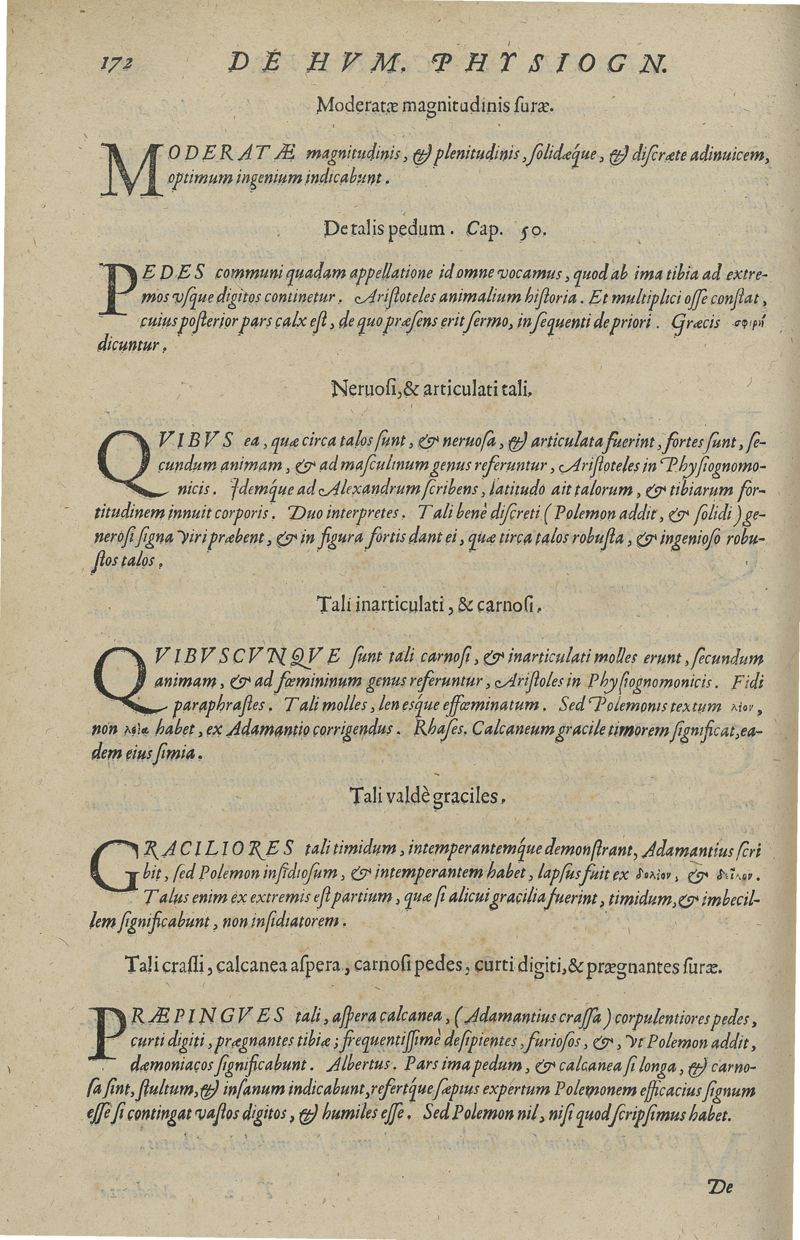 172 DE HVM. PHYSIOGN.
Moderatæ magnitudinis ſuræ.
MODERATÆ magnitudinis, & plenitudinis, ſolidæq́ue, & diſcræte adinuicem,
optimum ingenium indicabunt.
De talis pedum. Cap. 50.
PEDES communi quadam appellatione id omne vocamus, quod ab ima tibia ad extre-
mos vſque digitos continetur. Ariſtoteles animalium hiſtoria. Et multiplici oſſe conſtat,
cuius poſterior pars calx eſt, de quo præſens erit ſermo, in ſequenti de priori. Græcis
dicuntur.
Neruoſi, & articulati tali.
QVIBVS ea, quæ circa talos ſunt, & neruoſa, & articulata fuerint, fortes ſunt, ſe-
cundum animam, & ad maſculinum genus referuntur, Ariſtoteles in Phyſiognomo-
nicis. Idemq́ue ad Alexandrum ſcribens, latitudo ait talorum, & tibiarum for-
titudinem innuit corporis. Duo interpretes. Tali benè diſcreti (Polemon addit, & ſolidi) ge-
neroſi ſigna viri præbent, & in figura fortis dant ei, quæ tirca talos robuſta, & ingenioſo robu-
ſtos talos.
Tali inarticulati, & carnoſi.
QVIBVSCVNQVE ſunt tali carnoſi, & inarticulati molles erunt, ſecundum
animam, & ad fœmininum genus referuntur, Ariſtoles in Phyſiognomonicis. Fidi
paraphraſtes. Tali molles, lenesque effœminatum. Sed Polemonis textum λιον,
non habet, ex Adamantio corrigendus. Rhaſes. Calcaneum gracile timorem ſignificat, ea-
dem eius ſimia.
Tali valdè graciles.
GRACILIORES tali timidum, intemperantemq́ue demonſtrant, Adamantius ſcri
bit, ſed Polemon inſidioſum, & intemperantem habet, lapſus fuit ex δολιον, & δειλον.
Talus enim ex extremis eſt partium, quæ ſi alicui gracilia fuerint, timidum, & imbecil-
lem ſignificabunt, non inſidiatorem.
Tali craſſi, calcanea aſpera, carnoſi pedes, curti digiti, & prægnantes ſuræ.
PRÆPINGVES tali, aſpera calcanea, (Adamantius craſſa) corpulentiores pedes,
curti digiti, prægnantes tibiæ; frequentiſſimè deſipientes, furioſos, &, vt Polemon addit,
dæmoniacos ſignificabunt. Albertus. Pars ima pedum, & calcanea ſi longa, & carno-
ſa ſint, ſtultum, & inſanum indicabunt, refertq́ue ſæpius expertum Polemonem efficacius ſignum
eſſe ſi contingat vaſtos digitos, & humiles eſſe. Sed Polemon nil, niſi quod ſcripſimus habet.
De